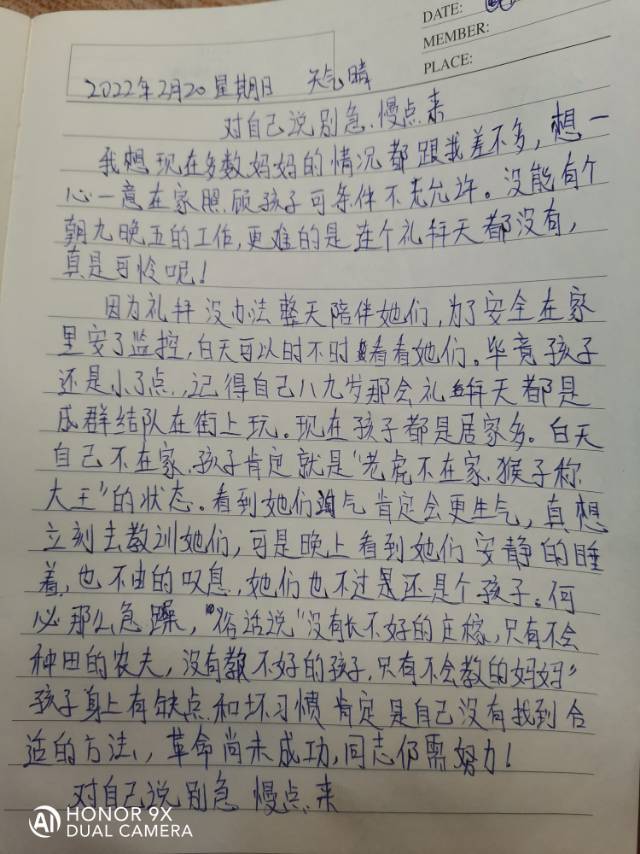 DATE:
MEMBER:
PLACE:
2022年2月20 星期日 天气晴
对自己说别急.慢点来
我想现在多数妈妈的情况都跟我差不多,想一
心一意在家照顾孩子可条件不允许。没能有个
朝九晚五的工作,更难的是连个礼拜天都没有,
真是可怜呢!
因为礼拜没办法整天陪伴她们,为了安全在家
里安了监控,白天可以时不时看看她们。毕竟孩子
还是小了点.,记得自己八九岁那会礼拜天都是
成群结队在街上玩。现在孩子都是居家多。白天
自己不在家.孩子肯定就是“老虎不在家.猴子称
大王”的状态。看到她们淘气肯定会更生气,真想
立刻去教训她们,可是晚上看到她们安静的睡
着,也不由的叹息.她们也不过是还是个孩子。何
必那么急躁,“俗话说”没有长不好的庄稼,只有不会
种田的农夫,没有教不好的孩子.只有不会教的妈妈”
孩子身上有缺点和坏习惯肯定是自己没有找到合
适的方法、,革命尚未成功,同志仍需努力!
对自己说别急 慢点来
HONOR 9X
DUAL CAMERA